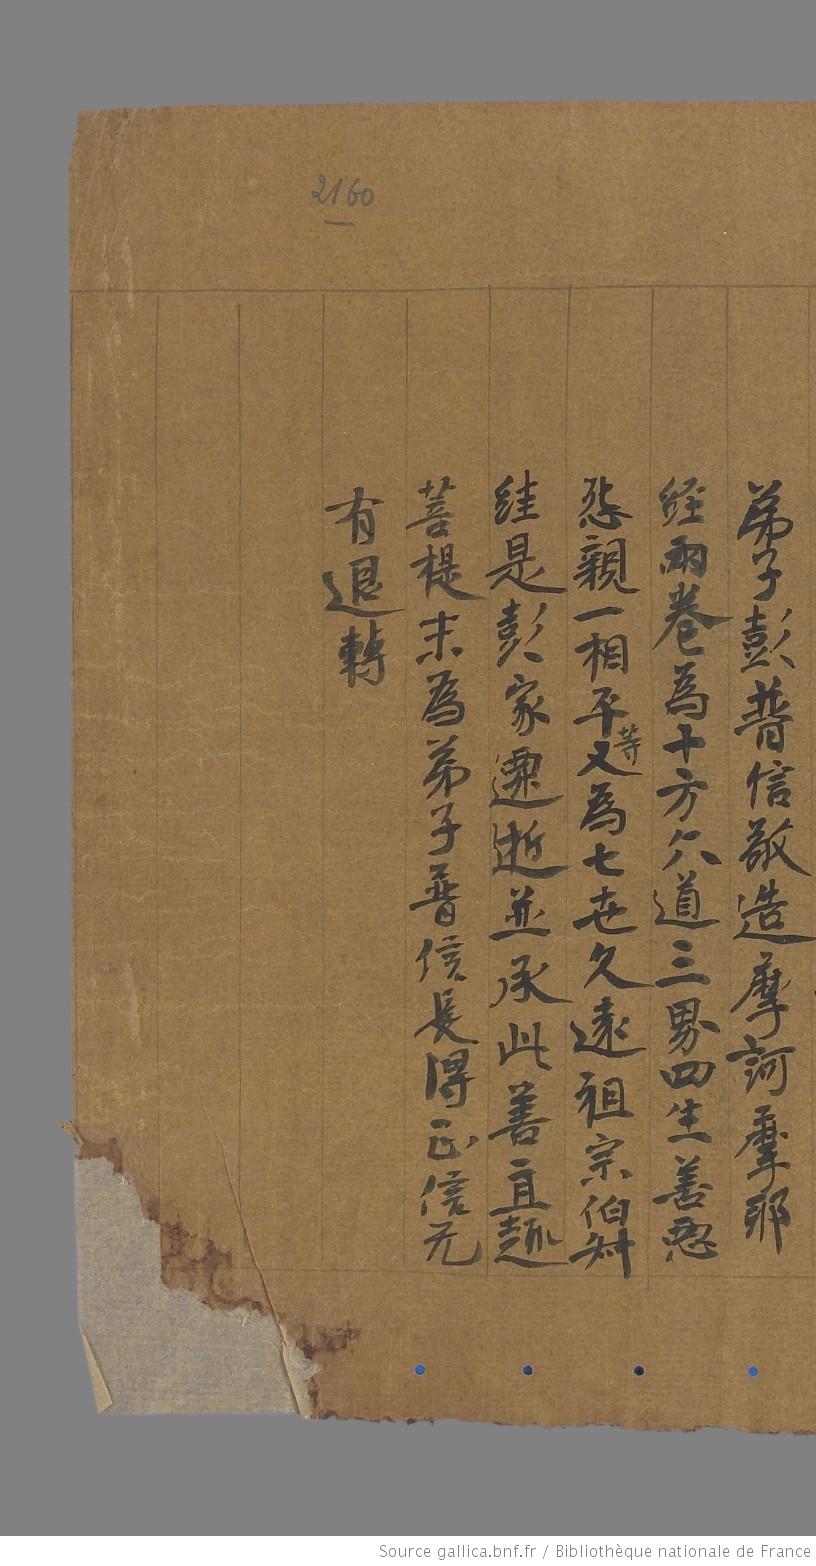 2160
弟子彭普信敬造摩訶摩耶
經兩卷為十方六道三界四生善惡
怨親一相平等又為七世久遠祖宗伯叔
絓是彭家遷逝並承此善直趣
菩提末為弟子普信長得正信无
有退轉
Source gallica.bnf.fr / Bibliothèque nationale de France